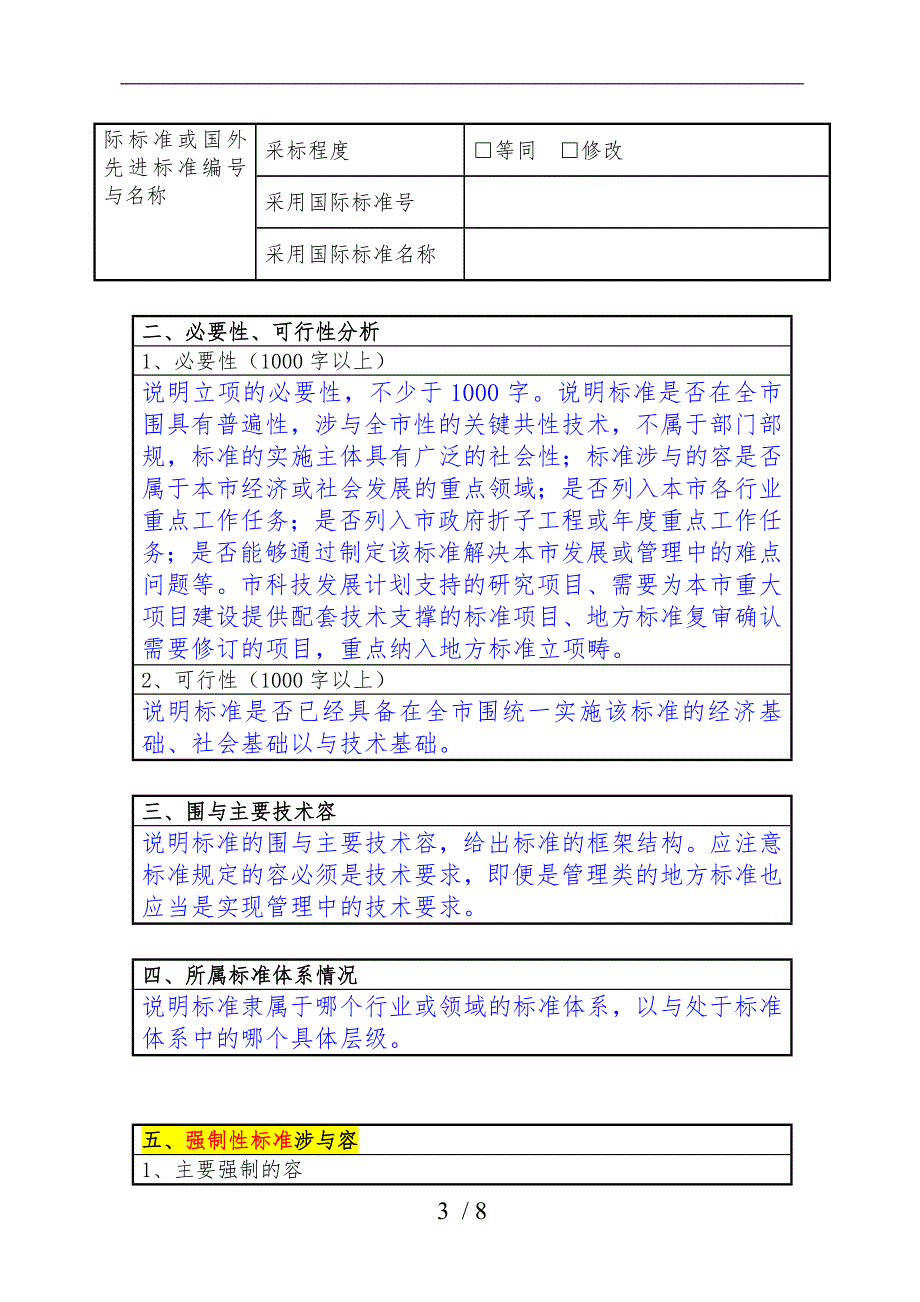 际标准或国外
先进标准编号
与名称
采标程度
□等同 □修改
采用国际标准号
采用国际标准名称
二、必要性、可行性分析
1、必要性（1000 字以上）
说明立项的必要性，不少于 1000 字。说明标准是否在全市
围具有普遍性，涉与全市性的关键共性技术，不属于部门部
规，标准的实施主体具有广泛的社会性；标准涉与的容是否
属于本市经济或社会发展的重点领域；是否列入本市各行业
重点工作任务；是否列入市政府折子工程或年度重点工作任
务；是否能够通过制定该标准解决本市发展或管理中的难点
问题等。市科技发展计划支持的研究项目、需要为本市重大
项目建设提供配套技术支撑的标准项目、地方标准复审确认
需要修订的项目，重点纳入地方标准立项畴。
2、可行性（1000 字以上）
说明标准是否已经具备在全市围统一实施该标准的经济基
础、社会基础以与技术基础。
三、围与主要技术容
说明标准的围与主要技术容，给出标准的框架结构。应注意
标准规定的容必须是技术要求，即便是管理类的地方标准也
应当是实现管理中的技术要求。
四、所属标准体系情况
说明标准隶属于哪个行业或领域的标准体系，以与处于标准
体系中的哪个具体层级。
五、强制性标准涉与容
1、主要强制的容
3 / 8